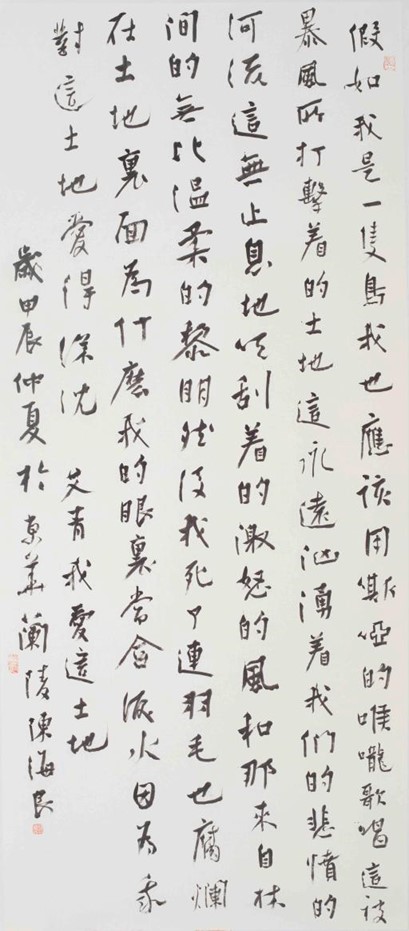 假如我是一隻鳥我也應該用嘶啞的喉嚨歌唱這被
暴風所打擊着的土地這永遠洶湧着我們的悲憤的
河流這無止息地吹刮着的激怒的風和那來自林
間的無比溫柔的黎明然後我死了連羽毛也腐爛
在土地裏面為什麼我的眼裏常含淚水因為我
對這土地愛得深沈 艾青我愛這土地
歲甲辰仲夏於京華蘭陵陳海良